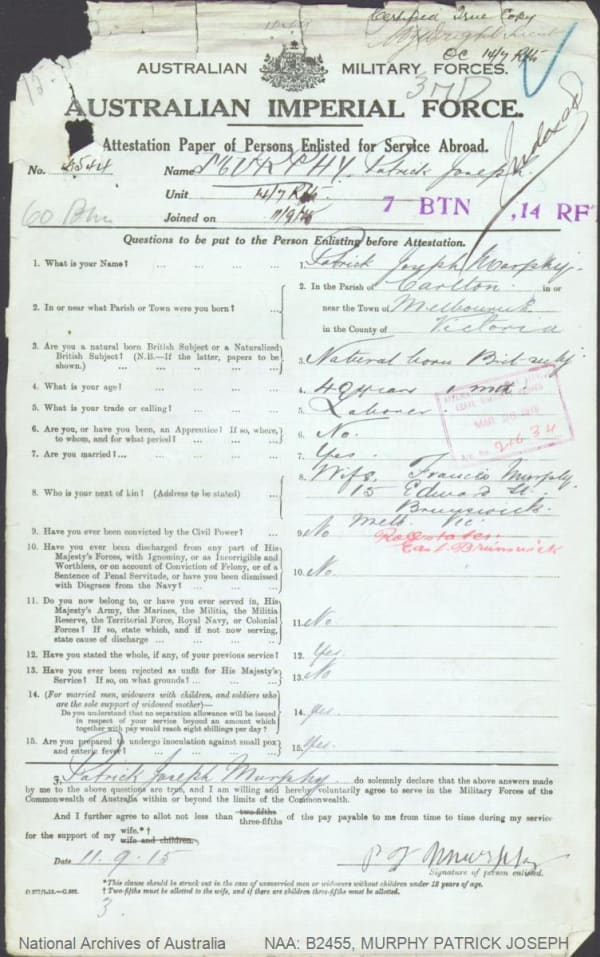 Certified True Copy
OC 14/7 Rfts
AUSTRALIAN MILITARY FORCES.
AUSTRALIAN IMPERIAL FORCE.
Attestation Paper of Persons Enlisted for Service Abroad.
Indexed
No. 4544 Name MURPHY Patrick Joseph
Unit 14/7 Rfts.
7 BTN ,14 RF
60 Btn Joined on 11/9/15
Questions to be put to the Person Enlisting before Attestation.
1. What is your Name? ... ... ... ... 1. Patrick Joseph Murphy.
2. In or near what Parish or Town were you born? ... 2. In the Parish of Carlton. in or
near the Town of Melbourne
in the County of Victoria
3. Are you a natural born British Subject or a Naturalized
British Subject? (N.B.—If the latter, papers to be
shown.) ... ... ... ... ... 3. Natural born Brit-subj
4. What is your age? ... ... ... ... 4. 42 years 1 mth.
5. What is your trade or calling? ... ... ... 5. Laborer.
6. Are you, or have you been, an Apprentice? If so, where,
to whom, and for what period? ... ... ... 6. No.
7. Are you married?... ... ... ... ... 7. Yes.
8. Who is your next of kin? (Address to be stated) ... 8. Wife. Francis Murphy.
15 Edward St.
Brunswick.
Melb. Vic.
9. Have you ever been convicted by the Civil Power? ... 9. No
East Brunswick
10. Have you ever been discharged from any part of His
Majesty's Forces, with Ignominy, or as Incorrigible and
Worthless, or on account of Conviction of Felony, or of a
Sentence of Penal Servitude, or have you been dismissed
with Disgrace from the Navy? ... ... ... 10. No.
11. Do you now belong to, or have you ever served in, His
Majesty's Army, the Marines, the Militia, the Militia
Reserve, the Territorial Force, Royal Navy, or Colonial
Forces? If so, state which, and if not now serving,
state cause of discharge ... ... ... ... 11. No.
12. Have you stated the whole, if any, of your previous service? 12. Yes
13. Have you ever been rejected as unfit for His Majesty's
Service? If so, on what grounds? ... ... ... 13. No
14. (For married men, widowers with children, and soldiers who
are the sole support of widowed mother)—
Do you understand that no separation allowance will be issued
in respect of your service beyond an amount which
together with pay would reach eight shillings per day? ... 14. Yes.
15. Are you prepared to undergo inoculation against small pox
and enteric fever? ... ... ... ... 15. Yes.
I, Patrick Joseph Murphy do solemnly declare that the above answers made
by me to the above questions are true, and I am willing and hereby voluntarily agree to serve in the Military Forces of the
Commonwealth of Australia within or beyond the limits of the Commonwealth.
And I further agree to allot not less than two-fifths three-fifths of the pay payable to me from time to time during my service
for the support of my wife.*† wife and children.
Date 11.9.15 P J Murphy
Signature of person enlisted.
*This clause should be struck out in the case of unmarried men or widowers without children under 18 years of age.
† Two-fifths must be allotted to the wife, and if there are children three-fifths must be allotted.
3.
National Archives of Australia NAA: B2455, MURPHY PATRICK JOSEPH